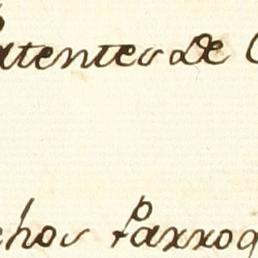 atentes de
chos Parroq